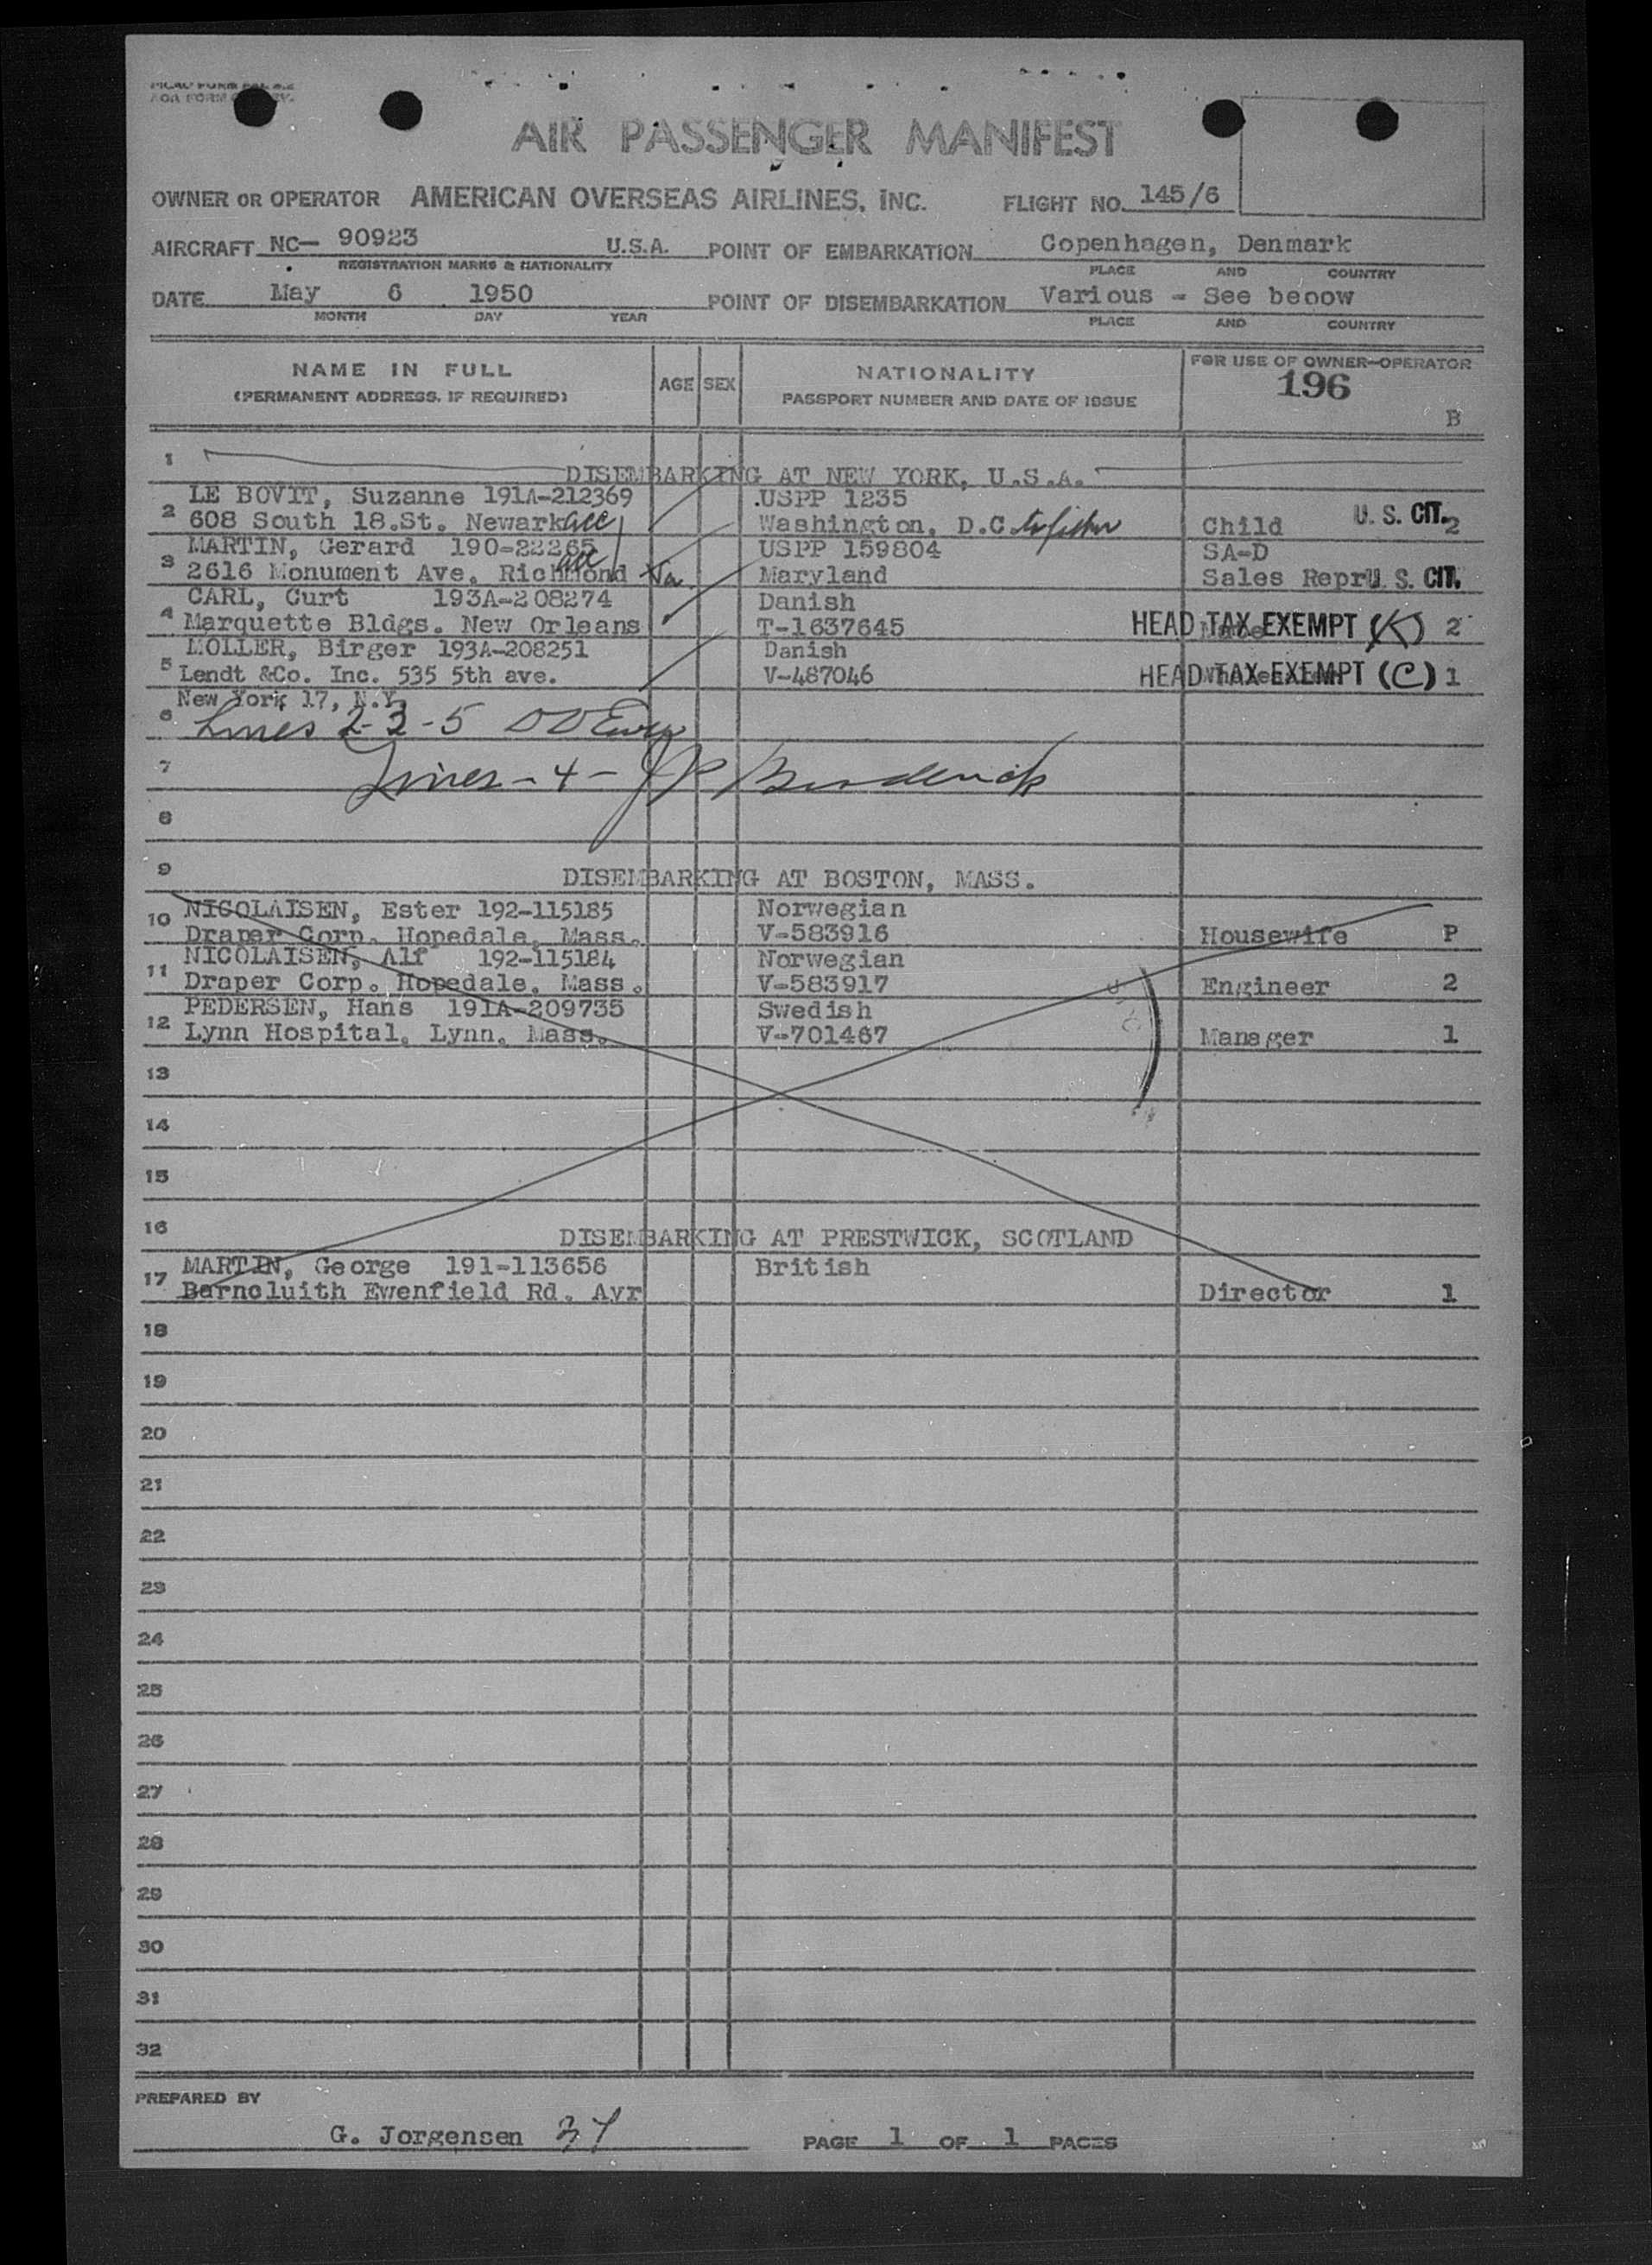 AIR PASSENGER MANIFEST
OWNER OR OPERATOR AMERICAN OVERSEAS AIRLINES, INC. FLIGHT NO. 145/6
AIRCRAFT NC- 90923 U.S.A. POINT OF EMBARKATION Copenhagen, Denmark
REGISTRATION MARKS & NATIONALITY PLACE AND COUNTRY
DATE May 6 1950 POINT OF DISEMBARKATION Various - See beoow
MONTH DAY YEAR PLACE AND COUNTRY
NAME IN FULL AGE SEX NATIONALITY FOR USE OF OWNER-OPERATOR
(PERMANENT ADDRESS, IF REQUIRED) PASSPORT NUMBER AND DATE OF ISSUE 196
B
1 DISEMBARKING AT NEW YORK, U.S.A.
LE BOVIT, Suzanne 191A-212369 .USPP 1235
2 608 South 18.St. Newark Washington, D.C. Child U. S. CIT. 2
MARTIN, Gerard 190-22265 USPP 159804 SA-D
3 2616 Monument Ave. Richmond Va Maryland Sales Repr U. S. CIT.
CARL, Curt 193A-208274 Danish
4 Marquette Bldgs. New Orleans T-1637645 HEAD TAX EXEMPT (K) 2
MOLLER, Birger 193A-208251 Danish
5 Lendt &Co. Inc. 535 5th ave. V-487046 HEAD TAX EXEMPT (C) 1
New York 17, N.Y.
6 Lines 2-3-5
7 Lines - 4 - JP Broderick
8
9 DISEMBARKING AT BOSTON, MASS.
NICOLAISEN, Ester 192-115185 Norwegian
10 Draper Corp. Hopedale, Mass. V-583916 Housewife P
NICOLAISEN, Alf 192-115184 Norwegian
11 Draper Corp. Hopedale, Mass. V-583917 Engineer 2
PEDERSEN, Hans 191A-209735 Swedish
12 Lynn Hospital, Lynn, Mass. V-701467 Manager 1
13
14
15
16 DISEMBARKING AT PRESTWICK, SCOTLAND
MARTIN, George 191-113656 British
17 Barncluith Ewenfield Rd. Ayr Director 1
18
19
20
21
22
23
24
25
26
27
28
29
30
31
32
PREPARED BY
G. Jorgensen 37 PAGE 1 OF 1 PAGES